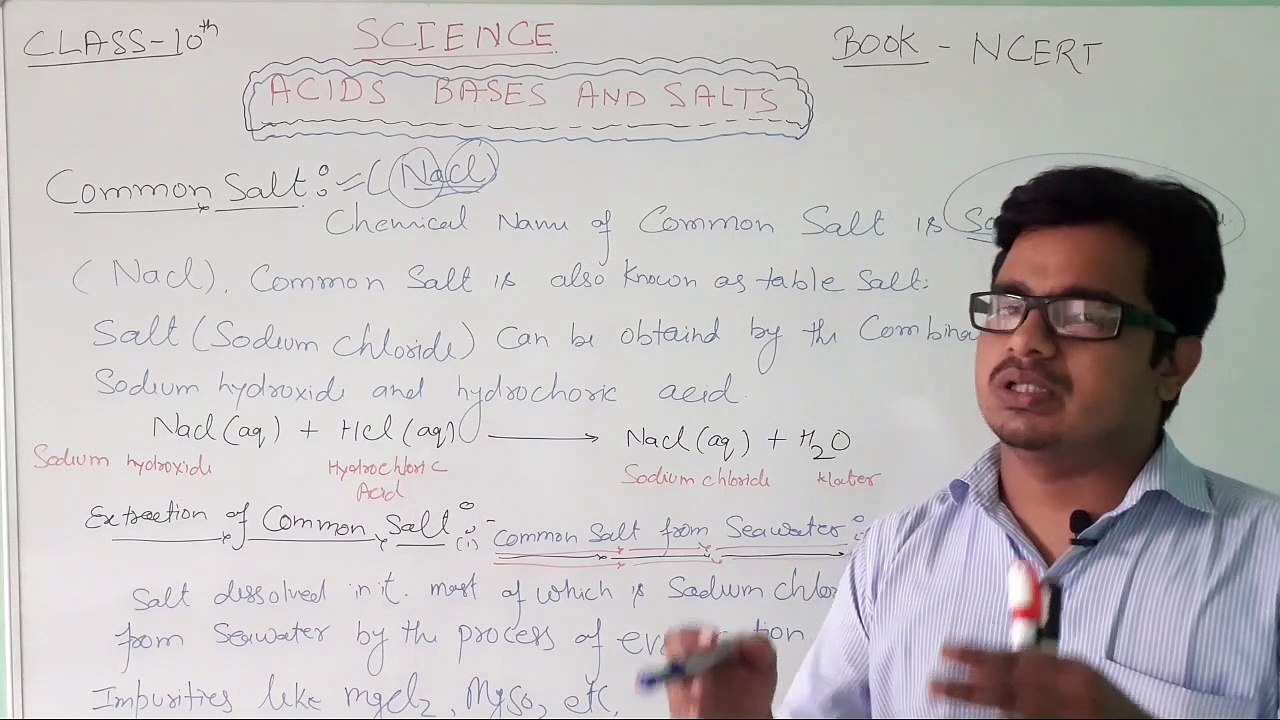 CLASS-10th
SCIENCE
BOOK - NCERT
ACIDS BASES AND SALTS
Common Salt :- (Nacl)
Chemical Name of Common Salt is
(Nacl). Common Salt is also known as table Salt.
Salt (Sodium chloride) can be obtaind by the Combina
Sodium hydroxide and hydrochoric acid.
Nacl(aq) + Hcl(aq) → Nacl(aq) + H2O
Sodium hydroxide Hydrochloric Acid Sodium chloride
Extraction of Common Salt : (i) Common Salt from Seawater :
Salt dissolved in it. most of which is Sodium chlor
from Seawater by the process of
Impurities like mgcl2, MgSO etc.